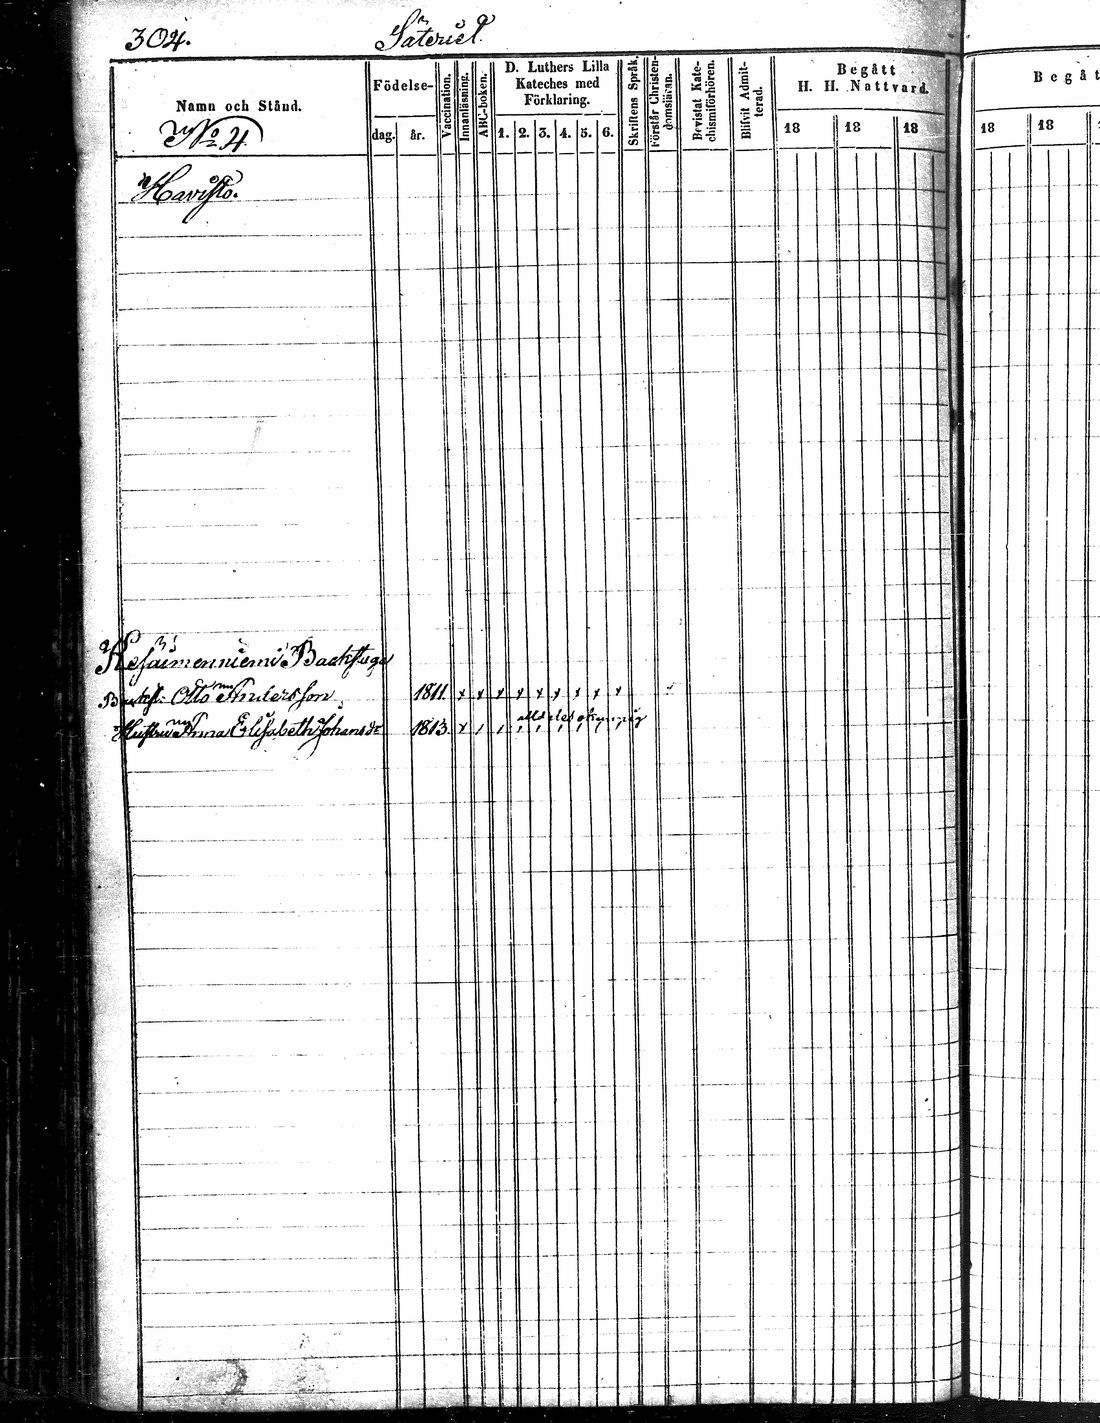 304. Säteriet
Namn och Stånd.
Födelse-
dag. år.
Vaccination.
Innanläsning.
ABC-boken.
D. Luthers Lilla
Kateches med
Förklaring.
1. 2. 3. 4. 5. 6.
Skriftens Språk.
Förstår Christen-
domsläran.
Bevistat Kate-
chismiförhören.
Blifvit Admit-
terad.
Begått
H. H. Nattvard.
18 18 18
Begåt
18 18
No 4
Havisto.
Backstuga
Otto Andersson 1811.
Hustru Anna Elisabeth Johansdr 1813.